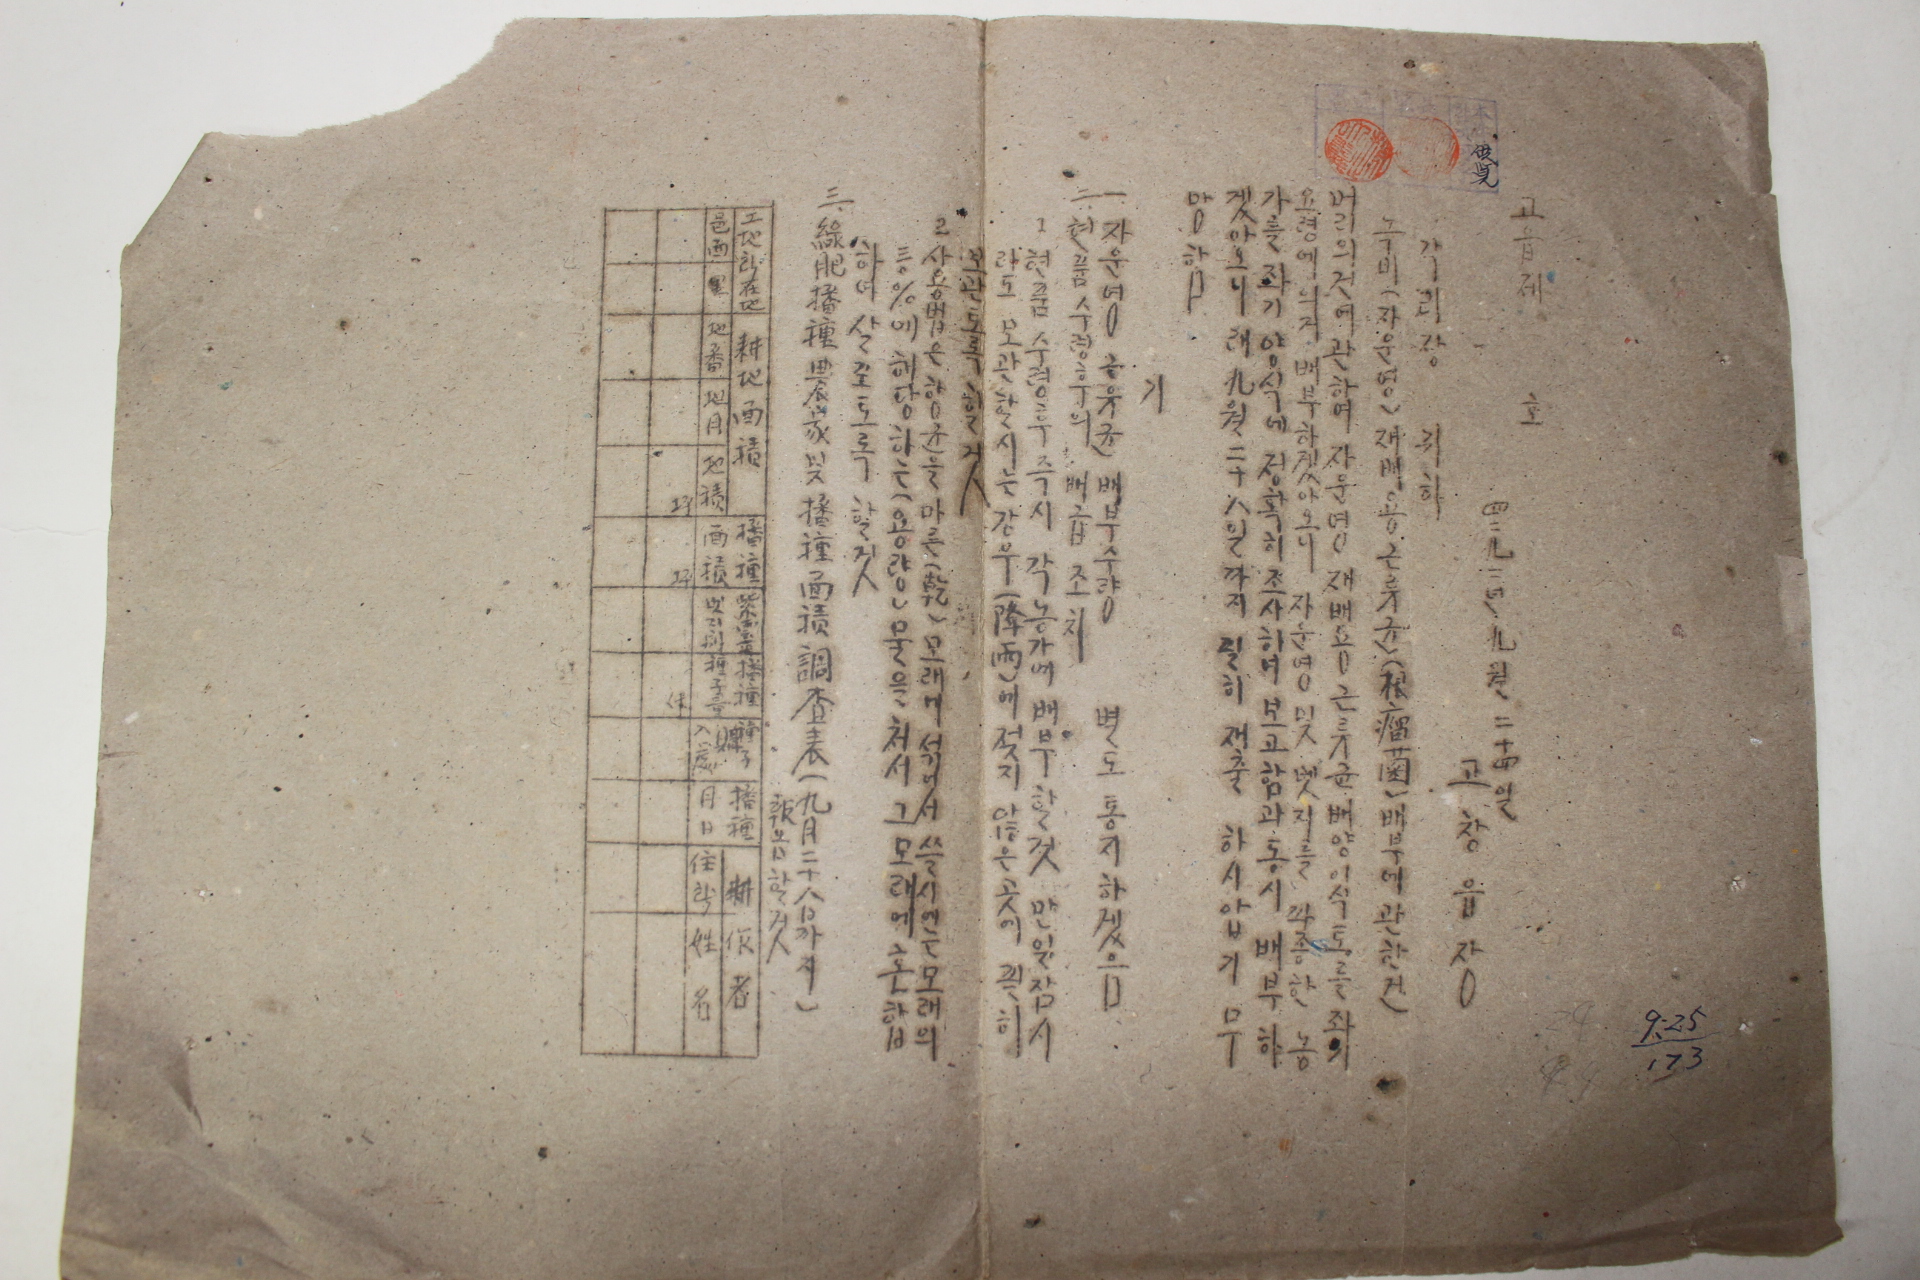 供覧
고읍제 호
四二九二년 九월 二十四일
고창읍장
각리장 귀하
녹비(자운영) 재배용 근류균(根瘤菌) 배부에 관한 건
머리의 건에 관하여 자운영 재배용 근류균 배양이식토를 좌의
요령에 의거 배부하겠아오니 자운영 및 벳지를 파종한 농
가를 좌기 양식에 정확히 조사하여 보고함과 동시 배부하
겠아오니 래 九월 二十八일까지 필히 재출 하시압기 무
망하믐
기
一. 자운영 근유균 배부수량 별도 통지하겠음
二. 현품수령후의 배급조치
1 현품 수령후 즉시 각 농가에 배부할것 만일 잠시
라도 보관할시는 강우(降雨)에 젖지 않은 곳에 필히
보관토록 할것
2 사용법은 함균을 마른(乾) 모래에 섞어서 쓸시에는 모래의
등%에 해당하는(용량) 물을 처서 그 모래에 혼합
하여 살포토록 할것
三. 綠肥播種農家및 播種面積調査表(九月二十八日까지)
報告할것
土地所在地 耕地面積 播種 紫雲英播種 種子 播種 耕作者
邑面 里 地番 地目 地積 面積 및 種子量 購入處 月日 住所 姓名
坪 坪
9.25
173